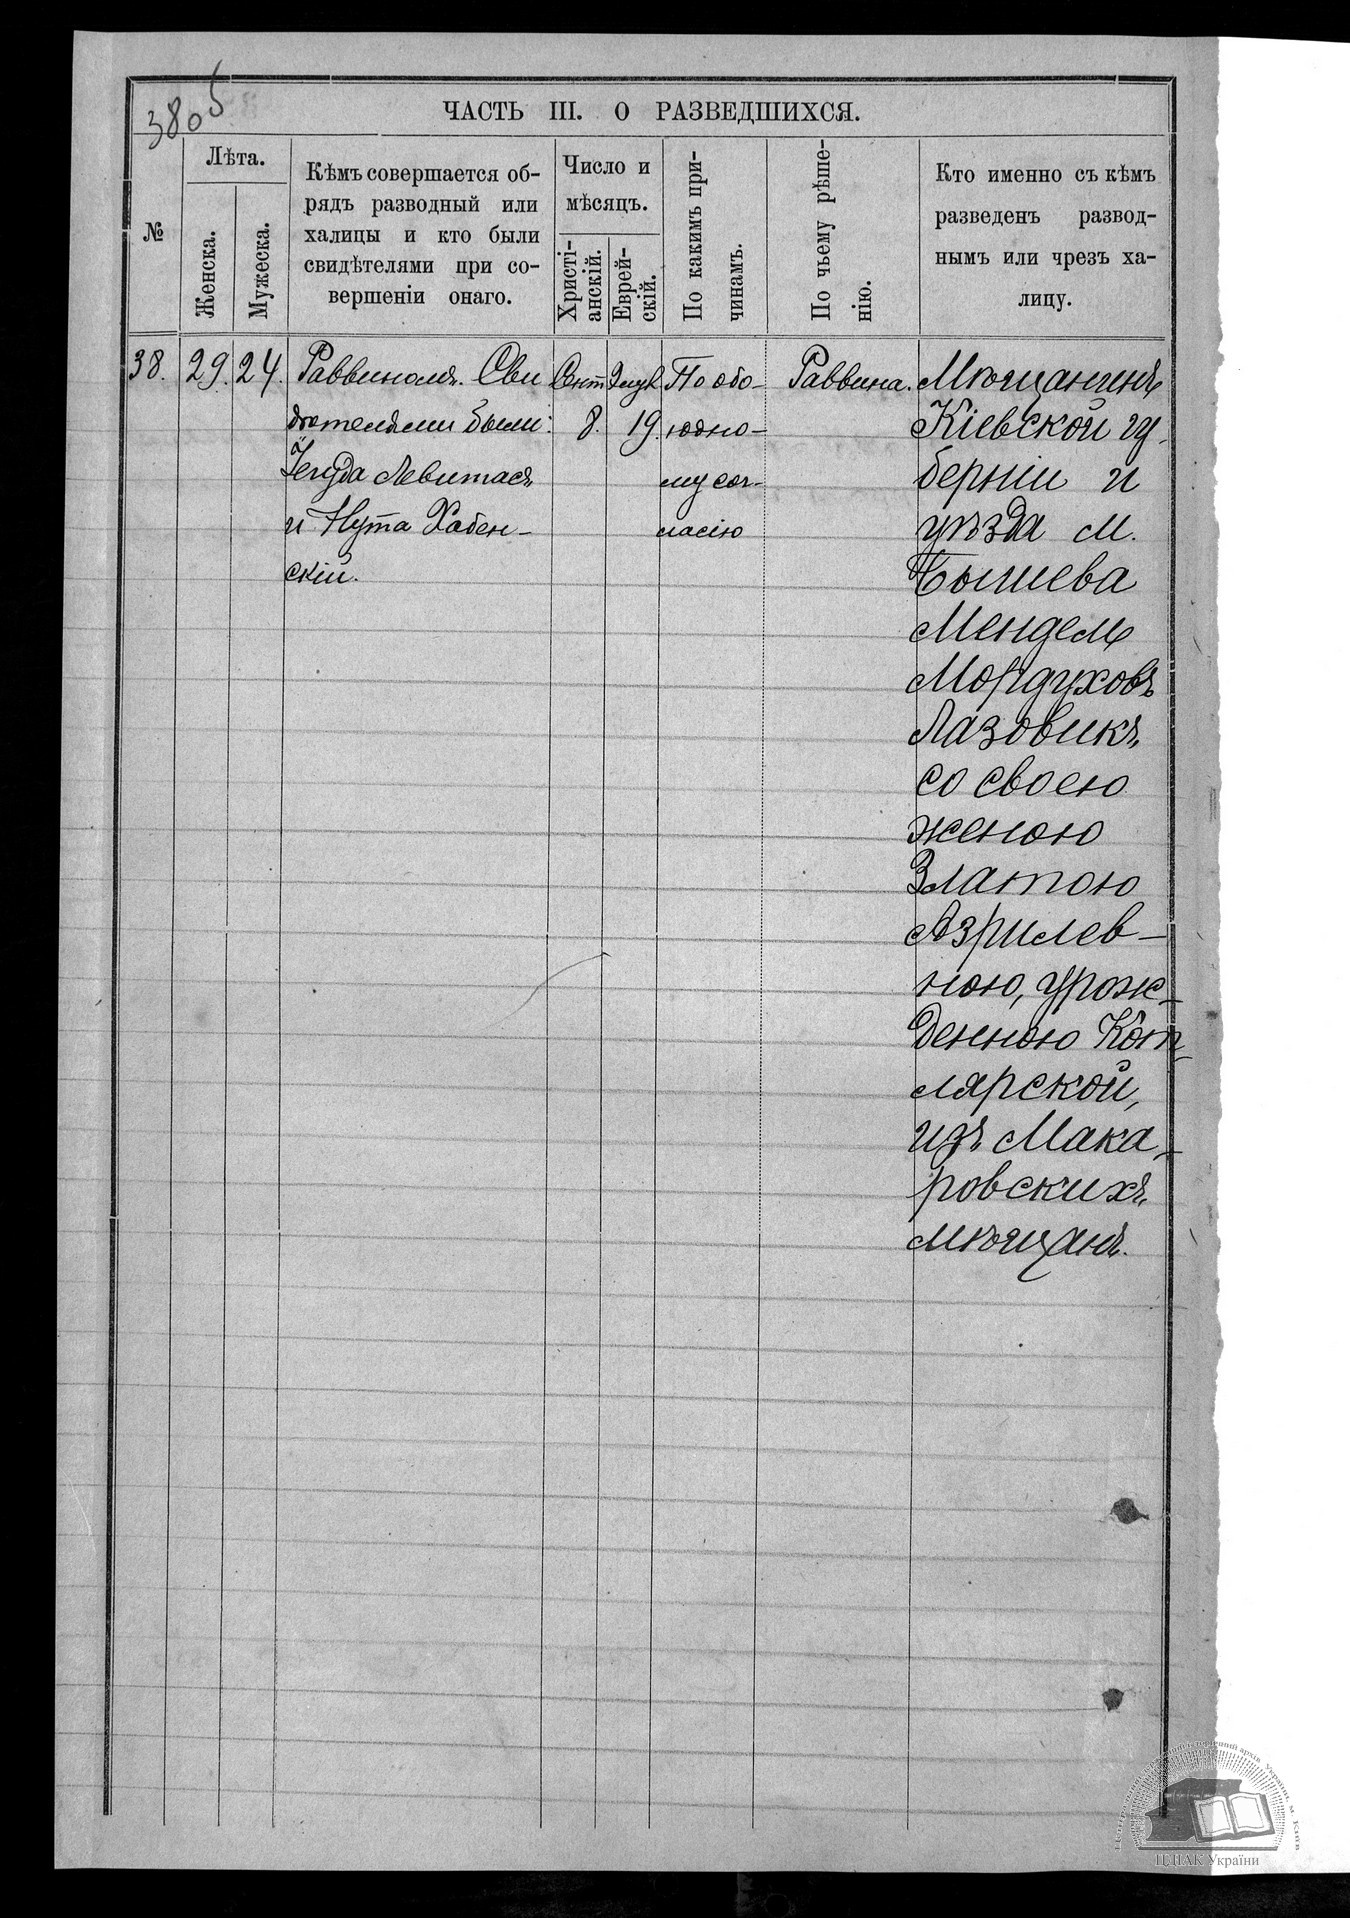 3805
ЧАСТЬ III. О РАЗВЕДШИХСЯ.
№
Лѣта.
Женска.
Мужеска.
Кѣмъ совершается об-
рядъ разводный или
халицы и кто были
свидѣтелями при со-
вершеніи онаго.
Число и
мѣсяцъ.
Христі-
анскій.
Еврей-
скій.
По какимъ при-
чинамъ.
По чьему рѣше-
нію.
Кто именно съ кѣмъ
разведенъ развод-
нымъ или чрезъ ха-
лицу.
38.
29.
24.
Раввиномъ. Сви
дѣтелями были:
Іегуда Левитасъ
и Нута Хабен-
скій.
Сент
8.
Элулъ
19.
По обо-
юдно-
му сог-
ласію
Раввина.
Мѣщанинъ
Кіевской гу-
берніи и
уѣзда м.
Бышева
Мендель
Мордуховъ
Лазовикъ
со своею
женою
Златою
Азрилев-
ною, урож-
денною Кот-
лярской,
изъ Мака-
ровскихъ
мѣщанъ.
ЦДІАК України